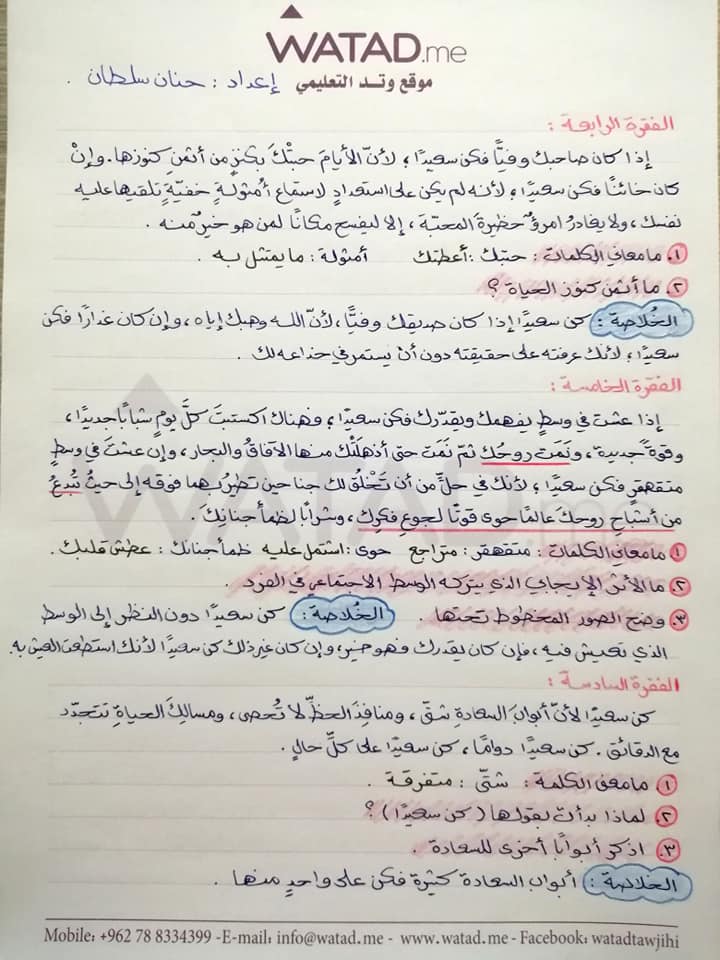 WATAD.me
موقع وتد التعليمي
إعداد : حنان سلطان .
الفقرة الرابعة :
إذا كان صاحبك وفيًّا فكن سعيدًا ؛ لأنّ الأيامَ حبتْكَ بكنزٍ من أثمن كنوزها . وإنْ
كان خائنًا فكن سعيدًا ؛ لأنه لم يكن على استعدادٍ لاستماع أُمثولةٍ خفيّةٍ تلقيها عليه
نفسك ، ولا يغادرُ امرؤٌ حظيرةَ المحبّة ، إلا ليفسح مكانًا لمن هو خيرٌ منه .
١. ما معاني الكلمات : حبتك : أعطتك أمثولة : ما يمتثل به .
٢. ما أثمن كنوز الحياة ؟
الخُلاصة : كن سعيدًا إذا كان صديقك وفيًّا ، لأنّ الله وهبك إياه ، وإن كان غدارًا فكن
سعيدًا ؛ لأنك عرفته على حقيقته دون أنْ يستمر في خداعه لك .
الفقرة الخامسة :
إذا عشت في وسطٍ يفهمك ويقدّرك فكن سعيدًا ؛ فهناك اكتسبتَ كلَّ يومٍ شبابًا جديدًا ،
وقوةً جديدة ، ونَمَت روحُك ثمّ نَمَت حتى أذهلَتْك منها الآفاقُ والبحار ، وإن عشتَ في وسطٍ
متقهقرٍ فكن سعيدًا ؛ لأنك في حلٍّ من أن تَخْلُقَ لك جناحين تطيرُ بهما فوقه إلى حيثُ تُبدعُ
من أشباحِ روحكَ عالمًا حوى قوتًا لجوعِ فكرِك ، وشرابًا لظمأ جنانِكَ .
١. ما معاني الكلمات : متقهقر : متراجع حوى : اشتمل عليه ظمأ جنانك : عطش قلبك .
٢. ما الأثر الإيجابي الذي يتركه الوسط الاجتماعي في الفرد .
٣. وضح الصور المخطوط تحتها . الخُلاصة : كن سعيدًا دون النظر إلى الوسط
الذي تعيش فيه ، فإن كان يقدرك فهو خير ، وإن كان غير ذلك كن سعيدًا لأنك استطعت العيش به .
الفقرة السادسة :
كن سعيدًا لأنّ أبوابَ السعادةِ شتى ، ومنافذَ الحظّ لا تُحصى ، ومسالكَ الحياةِ تتجدّد
مع الدقائق . كن سعيدًا دوامًا ، كن سعيدًا على كلِّ حالٍ .
١. ما معنى الكلمة : شتّى : متفرقة .
٢. لماذا بدأت بقولها ( كن سعيدًا ) ؟
٣. اذكر أبوابًا أخرى للسعادة .
الخلاصة : أبواب السعادة كثيرة فكن على واحدٍ منها .
WATAD.me
Mobile: +962 78 8334399 -E-mail: info@watad.me - www.watad.me - Facebook: watadtawjihi